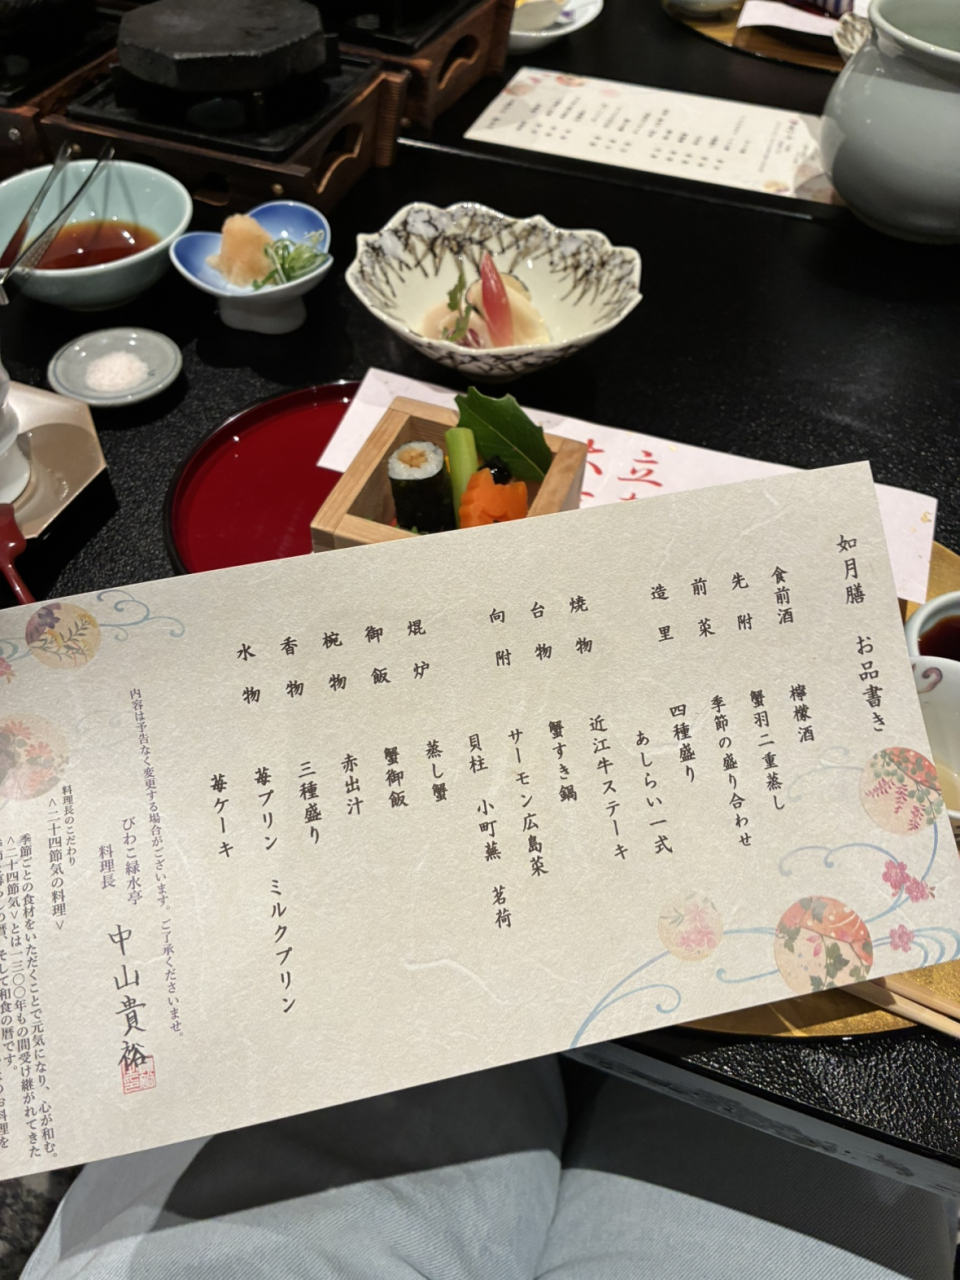 如月膳 お品書き
食前酒 檸檬酒
先附 蟹羽二重蒸し
前菜 季節の盛り合わせ
造里 四種盛り
あしらい一式
焼物 近江牛ステーキ
台物 蟹すき鍋
向附 サーモン広島菜
貝柱 小町蒸 茗荷
焜炉 蒸し蟹
御飯 蟹御飯
椀物 赤出汁
香物 三種盛り
水物 苺プリン ミルクプリン
苺ケーキ
内容は予告なく変更する場合がございます。ご了承くださいませ。
びわこ緑水亭
料理長 中山貴裕
料理長のこだわり
<二十四節気の料理>
季節ごとの食材をいただくことで元気になり、心が和む。
<二十四節気>とは一三〇〇年もの間受け継がれてきた
暦、そして和食の暦です。
お料理を
立